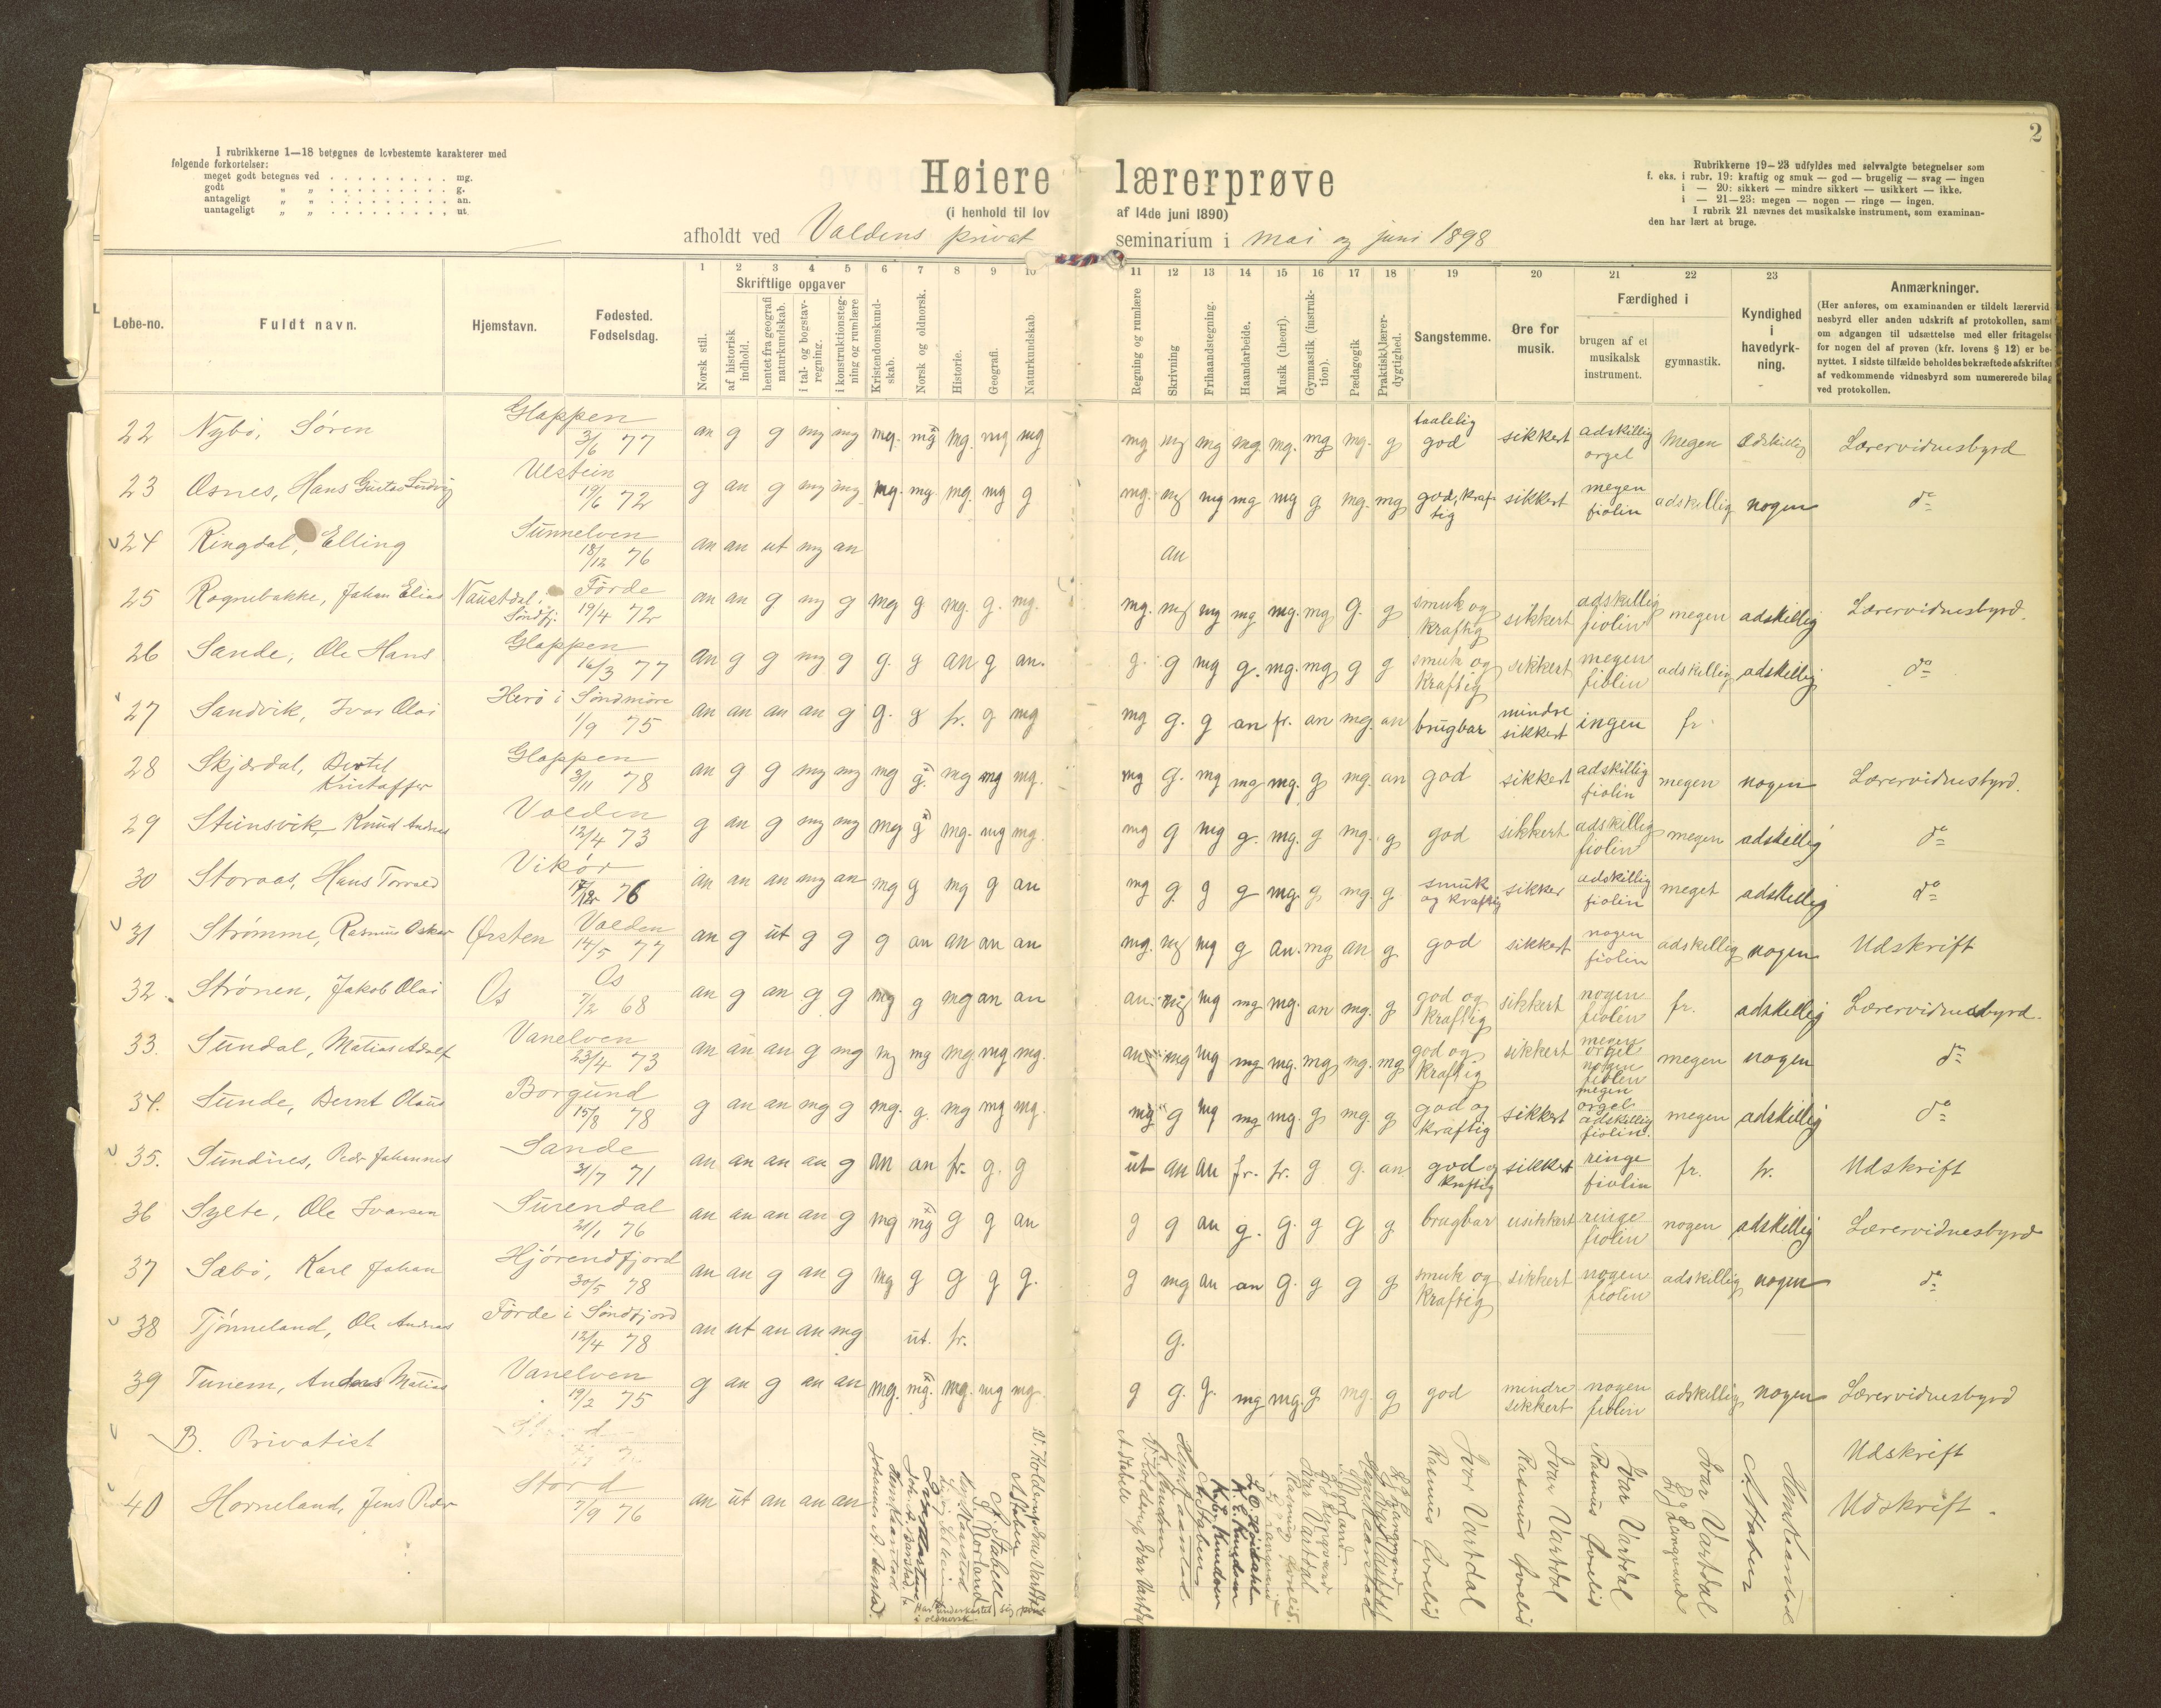 2
I rubrikkerne 1—18 betegnes de lovbestemte karakterer med
følgende forkortelser:
meget godt betegnes ved . . . . . . . . . . mg.
godt „ „ . . . . . . . . . . g.
antageligt „ „ . . . . . . . . . . an.
uantageligt „ „ . . . . . . . . . . ut.
Høiere lærerprøve
(i henhold til lov af 14de juni 1890)
afholdt ved Voldens privat seminarium i mai og juni 1898
Rubrikkerne 19—23 udfyldes med selvvalgte betegnelser som
f. eks. i rubr. 19: kraftig og smuk — god — brugelig — svag — ingen
i — 20: sikkert — mindre sikkert — usikkert — ikke.
i — 21—23: megen — nogen — ringe — ingen.
I rubrik 21 nævnes det musikalske instrument, som examinan-
den har lært at bruge.
Løbe-no.
Fuldt navn.
Hjemstavn.
Fødested.
Fødselsdag.
Skriftlige opgaver
1 Norsk stil.
2 af historisk indhold.
3 hentet fra geografi naturkundskab.
4 i tal- og bogstav-regning.
5 i konstruktionsteg-ning og rumlære
6 Kristendomskund-skab.
7 Norsk og oldnorsk.
8 Historie.
9 Geografi.
10 Naturkundskab
11 Regning og rumlære
12 Skrivning
13 Frihaandstegning.
14 Haandarbeide.
15 Musik (theori).
16 Gymnastik (instruk-tion).
17 Pædagogik
18 Praktisk lærer-dygtighed.
19 Sangstemme.
20 Øre for musik.
Færdighed i
21 brugen af et musikalsk instrument.
22 gymnastik.
23 Kyndighed i havedyrk-ning.
Anmærkninger.
(Her anføres, om examinanden er tildelt lærervid-
nesbyrd eller anden udskrift af protokollen, samt
om adgangen til udsættelse med eller fritagelse
for nogen del af prøven (kfr. lovens § 12) er be-
nyttet. I sidste tilfælde beholdes bekræftede afskrifter
af vedkommende vidnesbyrd som nummererede bilag
ved protokollen.
22 Nybø, Søren Gloppen 3/6 77 an g g mg mg mg. mg mg. mg mg mg mg mg mg mg. mg mg. g taalelig god sikkert adskillig orgel megen adskillig Lærervidnesbyrd
23 Osnes, Hans Gustav Ludvig Ulstein 19/6 72 g an g mg mg mg. mg. mg. mg g mg. mg mg mg mg g mg. mg god, kraftig sikkert megen fiolin adskillig nogen do
24 Ringdal, Elling Sunnelven 18/12 76 an an ut mg an an
25 Rognebakke, Johan Elias Naustdal i Søndfj. Førde 19/4 72 an an g mg g mg g mg. g. mg. mg. mg mg mg mg. mg g. g smuk og kraftig sikkert adskillig fiolin megen adskillig Lærervidnesbyrd.
26 Sande, Ole Hans Gloppen 16/3 77 an g g mg g g. g an g an. g. g mg g. mg. mg g g smuk og kraftig sikkert megen fiolin adskillig adskillig do
27 Sandvik, Ivar Olai Herø i Søndmøre 1/9 75 an an an an g g. g fr. g mg mg g. g an fr. an mg. an brugbar mindre sikkert ingen fr.
28 Skjærdal, Bertel Kristoffer Gloppen 3/11 78 an g g mg mg mg g. mg mg mg. mg g. mg mg mg. g mg. an god sikkert adskillig fiolin megen nogen Lærervidnesbyrd.
29 Steinsvik, Knud Andreas Volden 12/4 73 g an g mg mg mg g mg. mg mg. mg g mg g. mg. g mg. g god sikkert adskillig fiolin megen adskillig do
30 Storaas, Hans Torvald Vikør 17/12 76 an an an mg an mg g mg g an mg g. g g mg. g mg g. smuk og kraftig sikker adskillig fiolin meget adskillig do
31 Strømme, Rasmus Oskar Ørsten Volden 14/5 77 an g ut g g g an an an an mg. mg mg g an. mg an g. god sikkert nogen fiolin adskillig nogen Udskrift
32. Strønen, Jakob Olai Os Os 7/2 68 an g an g g mg g mg an an an. mg mg mg mg. an mg. g god og kraftig sikkert nogen fiolin fr. adskillig Lærervidnesbyrd.
33. Sundal, Matias Adolf Vanelven 23/4 73 an an an g mg mg mg mg. mg mg. an mg mg mg mg. mg mg. mg god og kraftig sikkert megen orgel nogen fiolin megen nogen do
34. Sunde, Bernt Olaus Borgund 15/8 78 g an an mg g mg. g. mg mg mg. mg g mg mg mg. g mg. g god og kraftig sikkert megen orgel adskillig fiolin. megen adskillig do
35. Sundnes, Peder Johannes Sande 31/7 71 an an an an g an an fr. g. g ut an an fr. fr. g g. an god og kraftig sikkert ringe fiolin fr. fr. Udskrift
36 Sylte, Ole Ivarsen Surendal 21/1 76 an an an an g mg mg g g an g g an g. g. g g g. brugbar usikkert ringe fiolin nogen adskillig Lærervidnesbyrd
37 Sæbø, Karl Johan Hjørendfjord 30/5 78 an an g an g mg g g g g. g mg an an g. g g g smuk og kraftig sikkert nogen fiolin adskillig nogen do
38 Tjønneland, Ole Andreas Førde i Søndfjord 12/4 78 an ut an an mg ut. fr. g.
39 Tunem, Anders Matias Vanelven 19/2 75 g an g an an mg. mg. mg. mg mg. g g. g. mg mg. g mg. g god mindre sikkert nogen fiolin adskillig nogen Lærervidnesbyrd
B. Privatist Udskrift
40 Horneland, Jens Peder Stord 7/9 76 an ut an an an Udskrift.
Ivar Vartdal
Rasmus
Ivar Vartdal
Rasmus
Ivar Vartdal
Rasmus
Ivar Vartdal
Har underkastet sig prøve i oldnorsk.